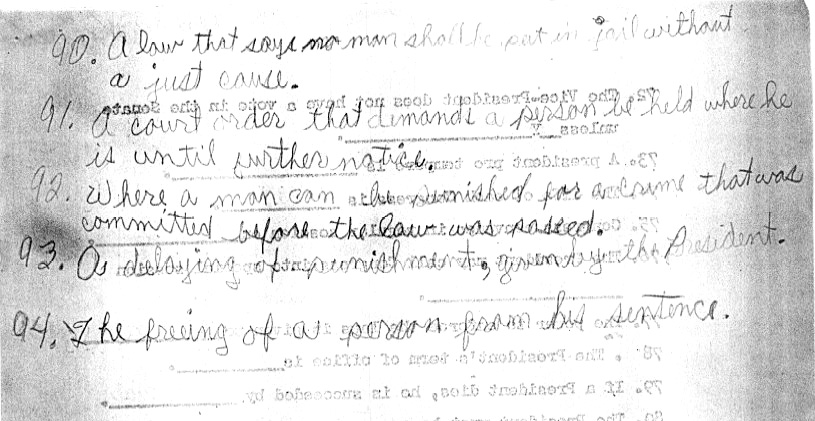 90. A law that says no man shall be put in jail without
a just cause.
91. A court order that demands a person be held where he
is until further notice.
92. Where a man can be punished for a crime that was
committed before the law was passed.
93. A delaying of punishment, given by the President.
94. The freeing of a person from his sentence.
72. The Vice-President does not have a vote in the Senate
unless
73. A president pro tempore is
78. The President's term of office is
79. If a President dies, he is succeeded by